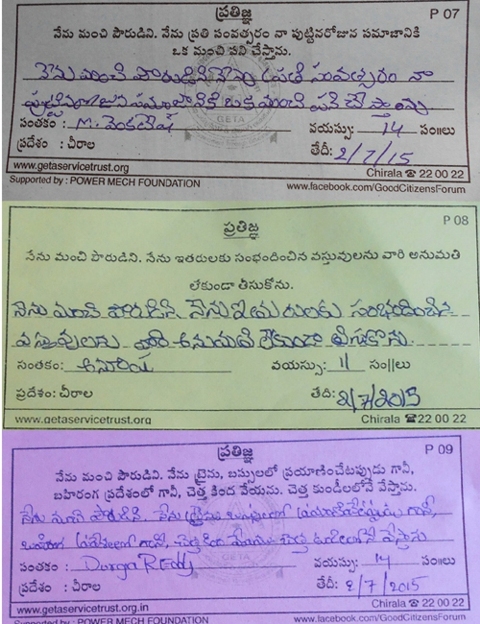 ప్రతిజ్ఞ P 07
నేను మంచి పౌరుడిని. నేను ప్రతి సంవత్సరం నా పుట్టినరోజున సమాజానికి
ఒక మంచి పని చేస్తాను.
నేను మంచి పౌరుడిని నేను ప్రతి సంవత్సరం నా
పుట్టినరోజున సమాజానికి ఒక మంచి పని చేస్తాను
సంతకం : M. వెంకటేష్ వయస్సు: 14 సం॥లు
ప్రదేశం : చీరాల తేదీ: 2/7/15
www.getaservicetrust.org Chirala ☎ 22 00 22
Supported by : POWER MECH FOUNDATION www.facebook.com/GoodCitizensForum
ప్రతిజ్ఞ P 08
నేను మంచి పౌరుడిని. నేను ఇతరులకు సంభందించిన వస్తువులను వారి అనుమతి
లేకుండా తీసుకోను.
నేను మంచి పౌరుడిని నేను ఇతరులకు సంభందించిన
వస్తువులను వారి అనుమతి లేకుండా తీసుకోను
సంతకం: వయస్సు: 11 సం||లు
ప్రదేశం: చీరాల తేది: 2/7/2015
www.getaservicetrust.org Chirala ☎ 22 00 22
ప్రతిజ్ఞ P 09
నేను మంచి పౌరుడిని. నేను ట్రైను, బస్సులలో ప్రయాణించేటప్పుడు గానీ,
బహిరంగ ప్రదేశంలో గానీ, చెత్త కింద వేయను. చెత్త కుండీలలోనే వేస్తాను.
నేను మంచి పౌరుడిని. నేను ట్రైను బస్సులలో ప్రయాణించేటప్పుడు గానీ,
బహిరంగ ప్రదేశంలో గానీ, చెత్త కింద వేయను చెత్త కుండీలలోనే వేస్తాను
సంతకం : Durga REddy వయస్సు: 14 సం॥లు
ప్రదేశం : చీరాల తేదీ: 2/7/2015
www.getaservicetrust.org.in Chirala ☎ 22 00 22
Supported by : POWER MECH FOUNDATION www.facebook.com/GoodCitizensForum